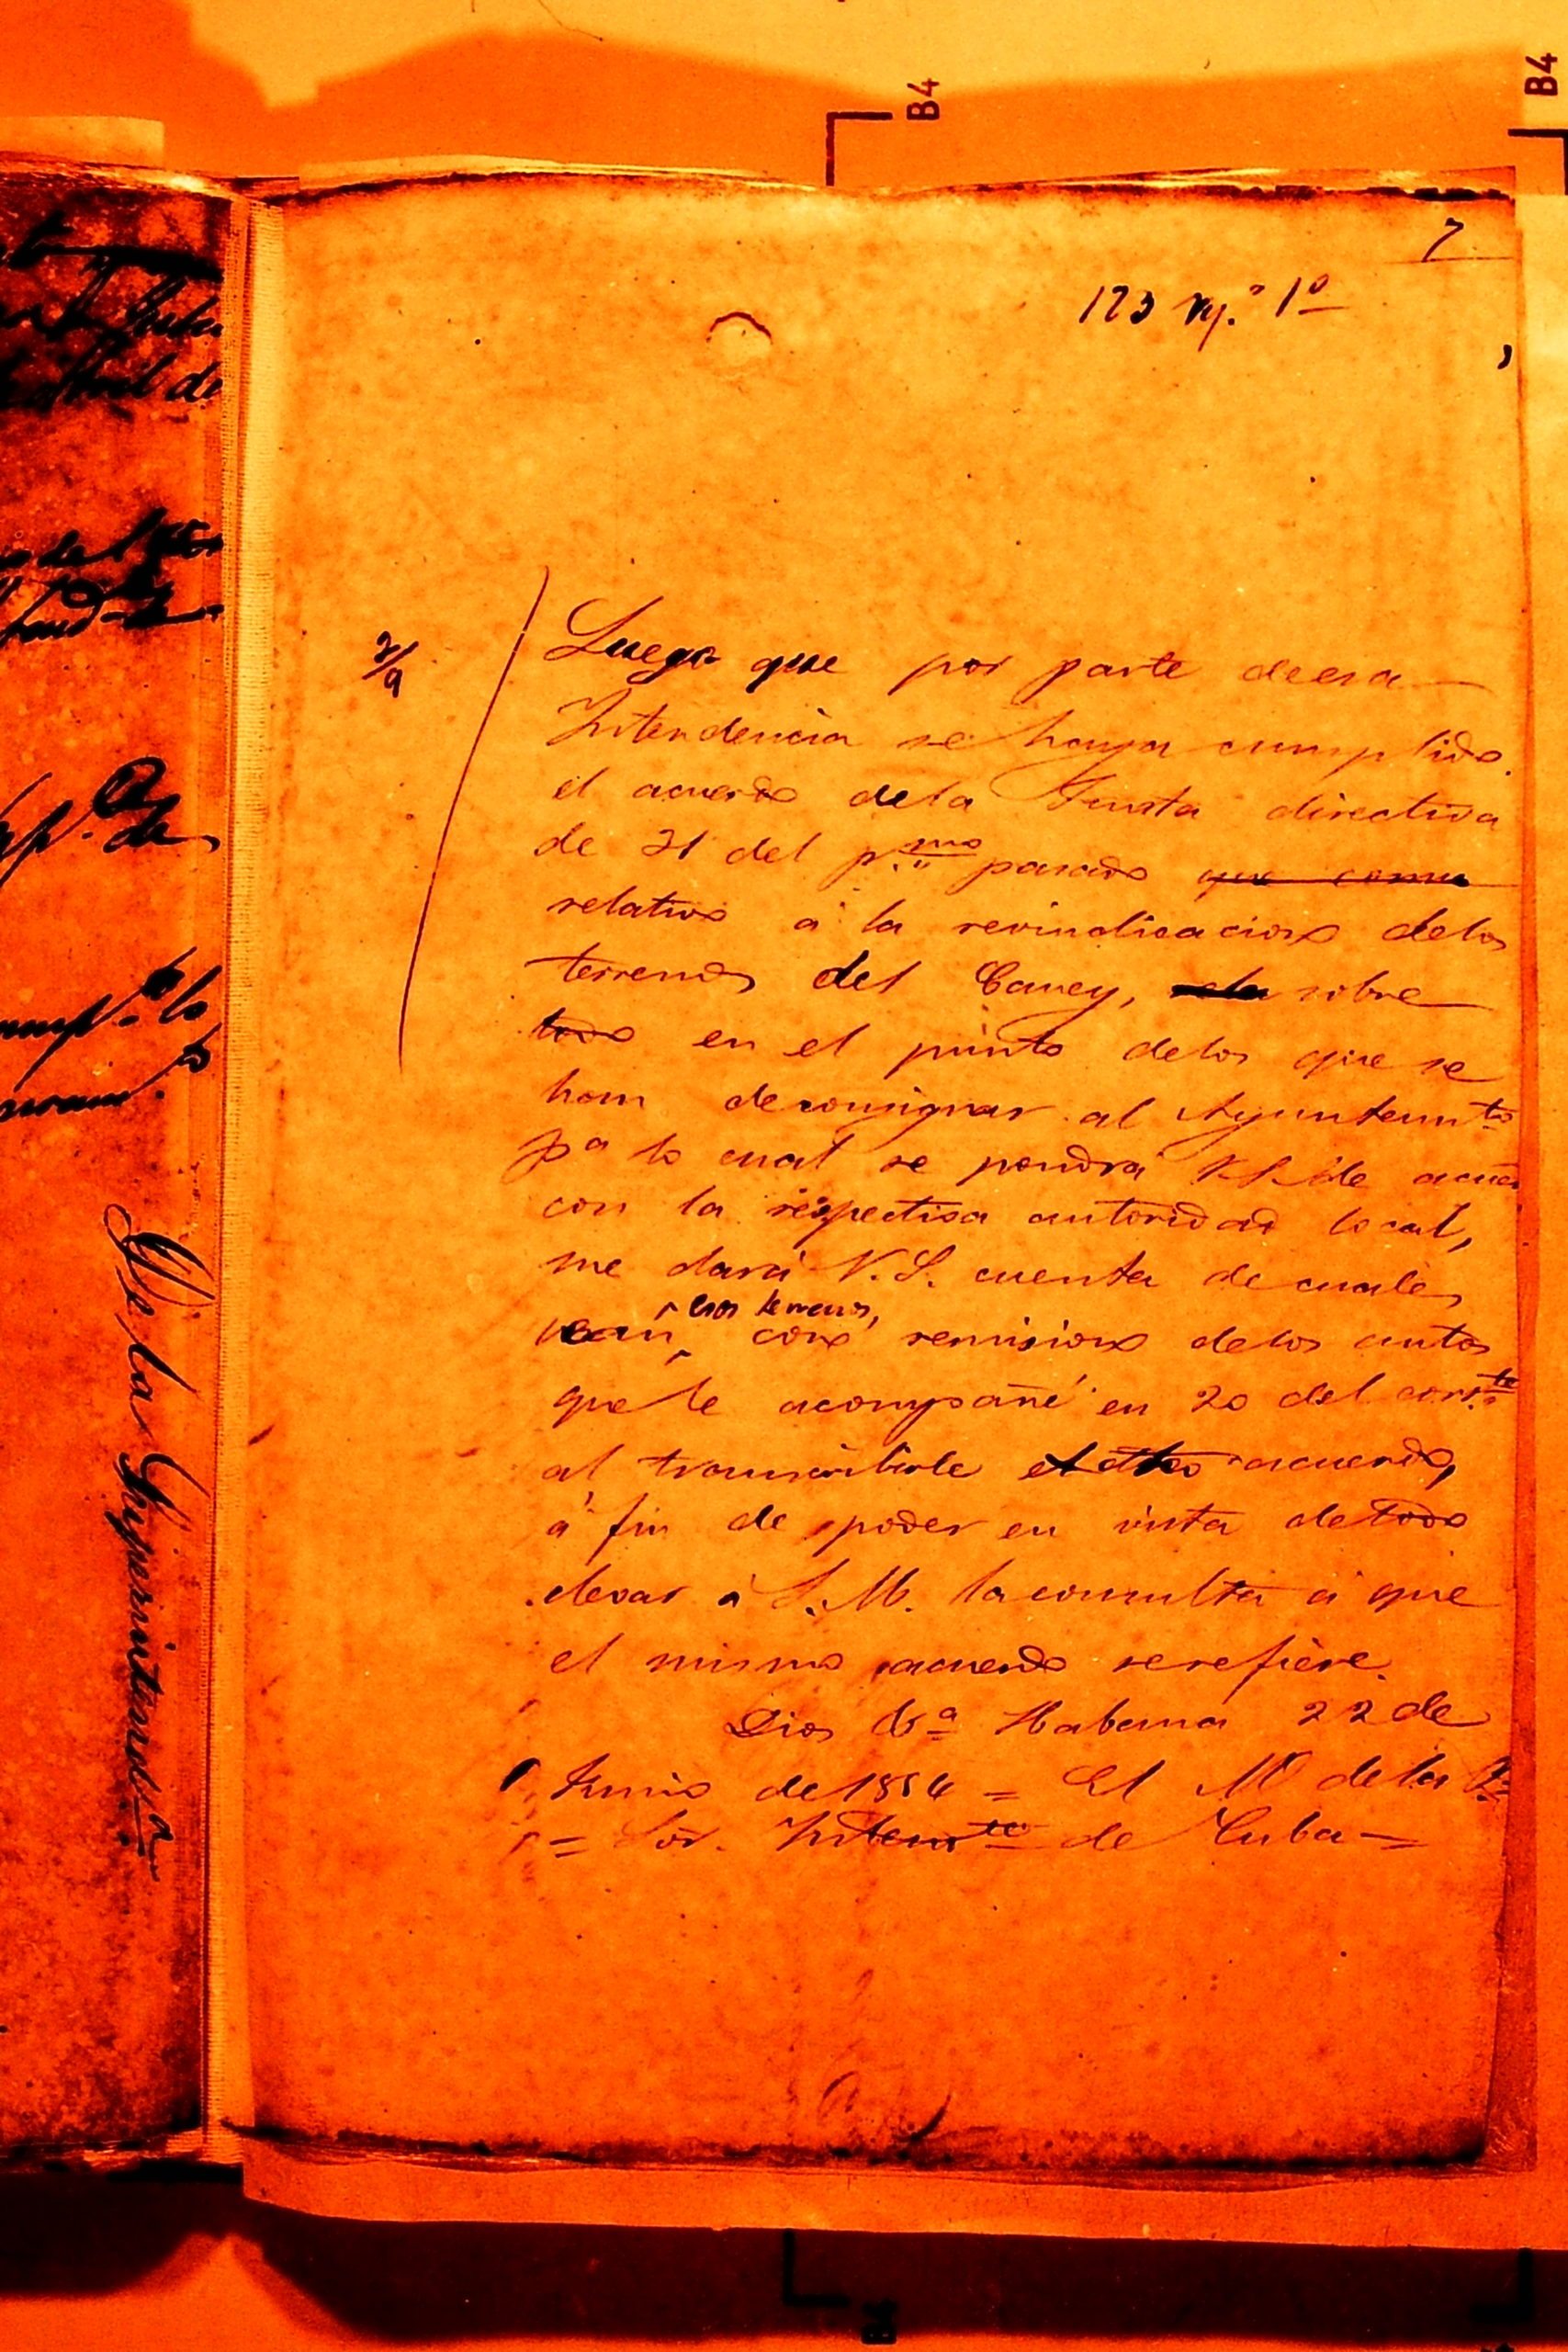 B4
B4
7
123 
2/9
Luego que por parte de esa
Intendencia se haya cumplido
el acuerdo dela Junta directiva
de 21 del p.mo pasado que como
relativo á la revindicacion delos
terrenos del Caney, sobre
todo en el punto delos que se
han de consignar al Ayuntamto
pa lo cual se pondrá V.S. de acuer
con la respectiva autoridad local,
me dará V.S. cuenta de cuales
esos terrenos,
sean, con remision delos autos
que le acompañé en 20 del corrte
al transcribirle el otro acuerdo,
á fin de poder en vista de todo
elevar á S.M. la consulta á que
el mismo acuerdo se refiere.
Dios Gª Habana 22 de
Junio de 1854 = El M de la
= Sor. Intente de Cuba =
De la Superintenda
B4